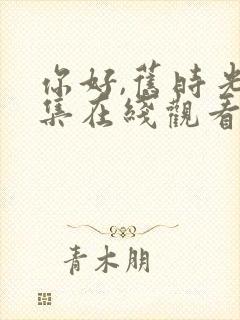 你好,舊時光
集在綫觀看
青木朋